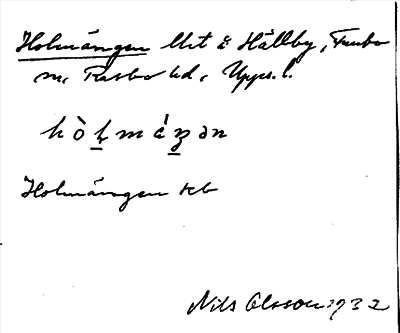 Holmängen Urt å Hällby, Funbo
sn, Rasbo hd, Upps. l.
hòḻmáŋ̱ən
Holmängen kb
Nils Olsson 1932